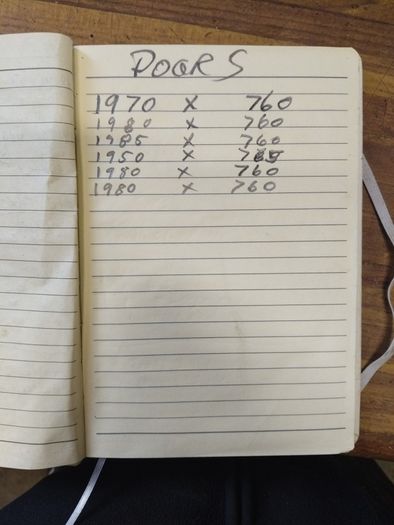 DOORS
1970 x 760
1980 x 760
1985 x 760
1950 x
1980 x 760
1980 x 760